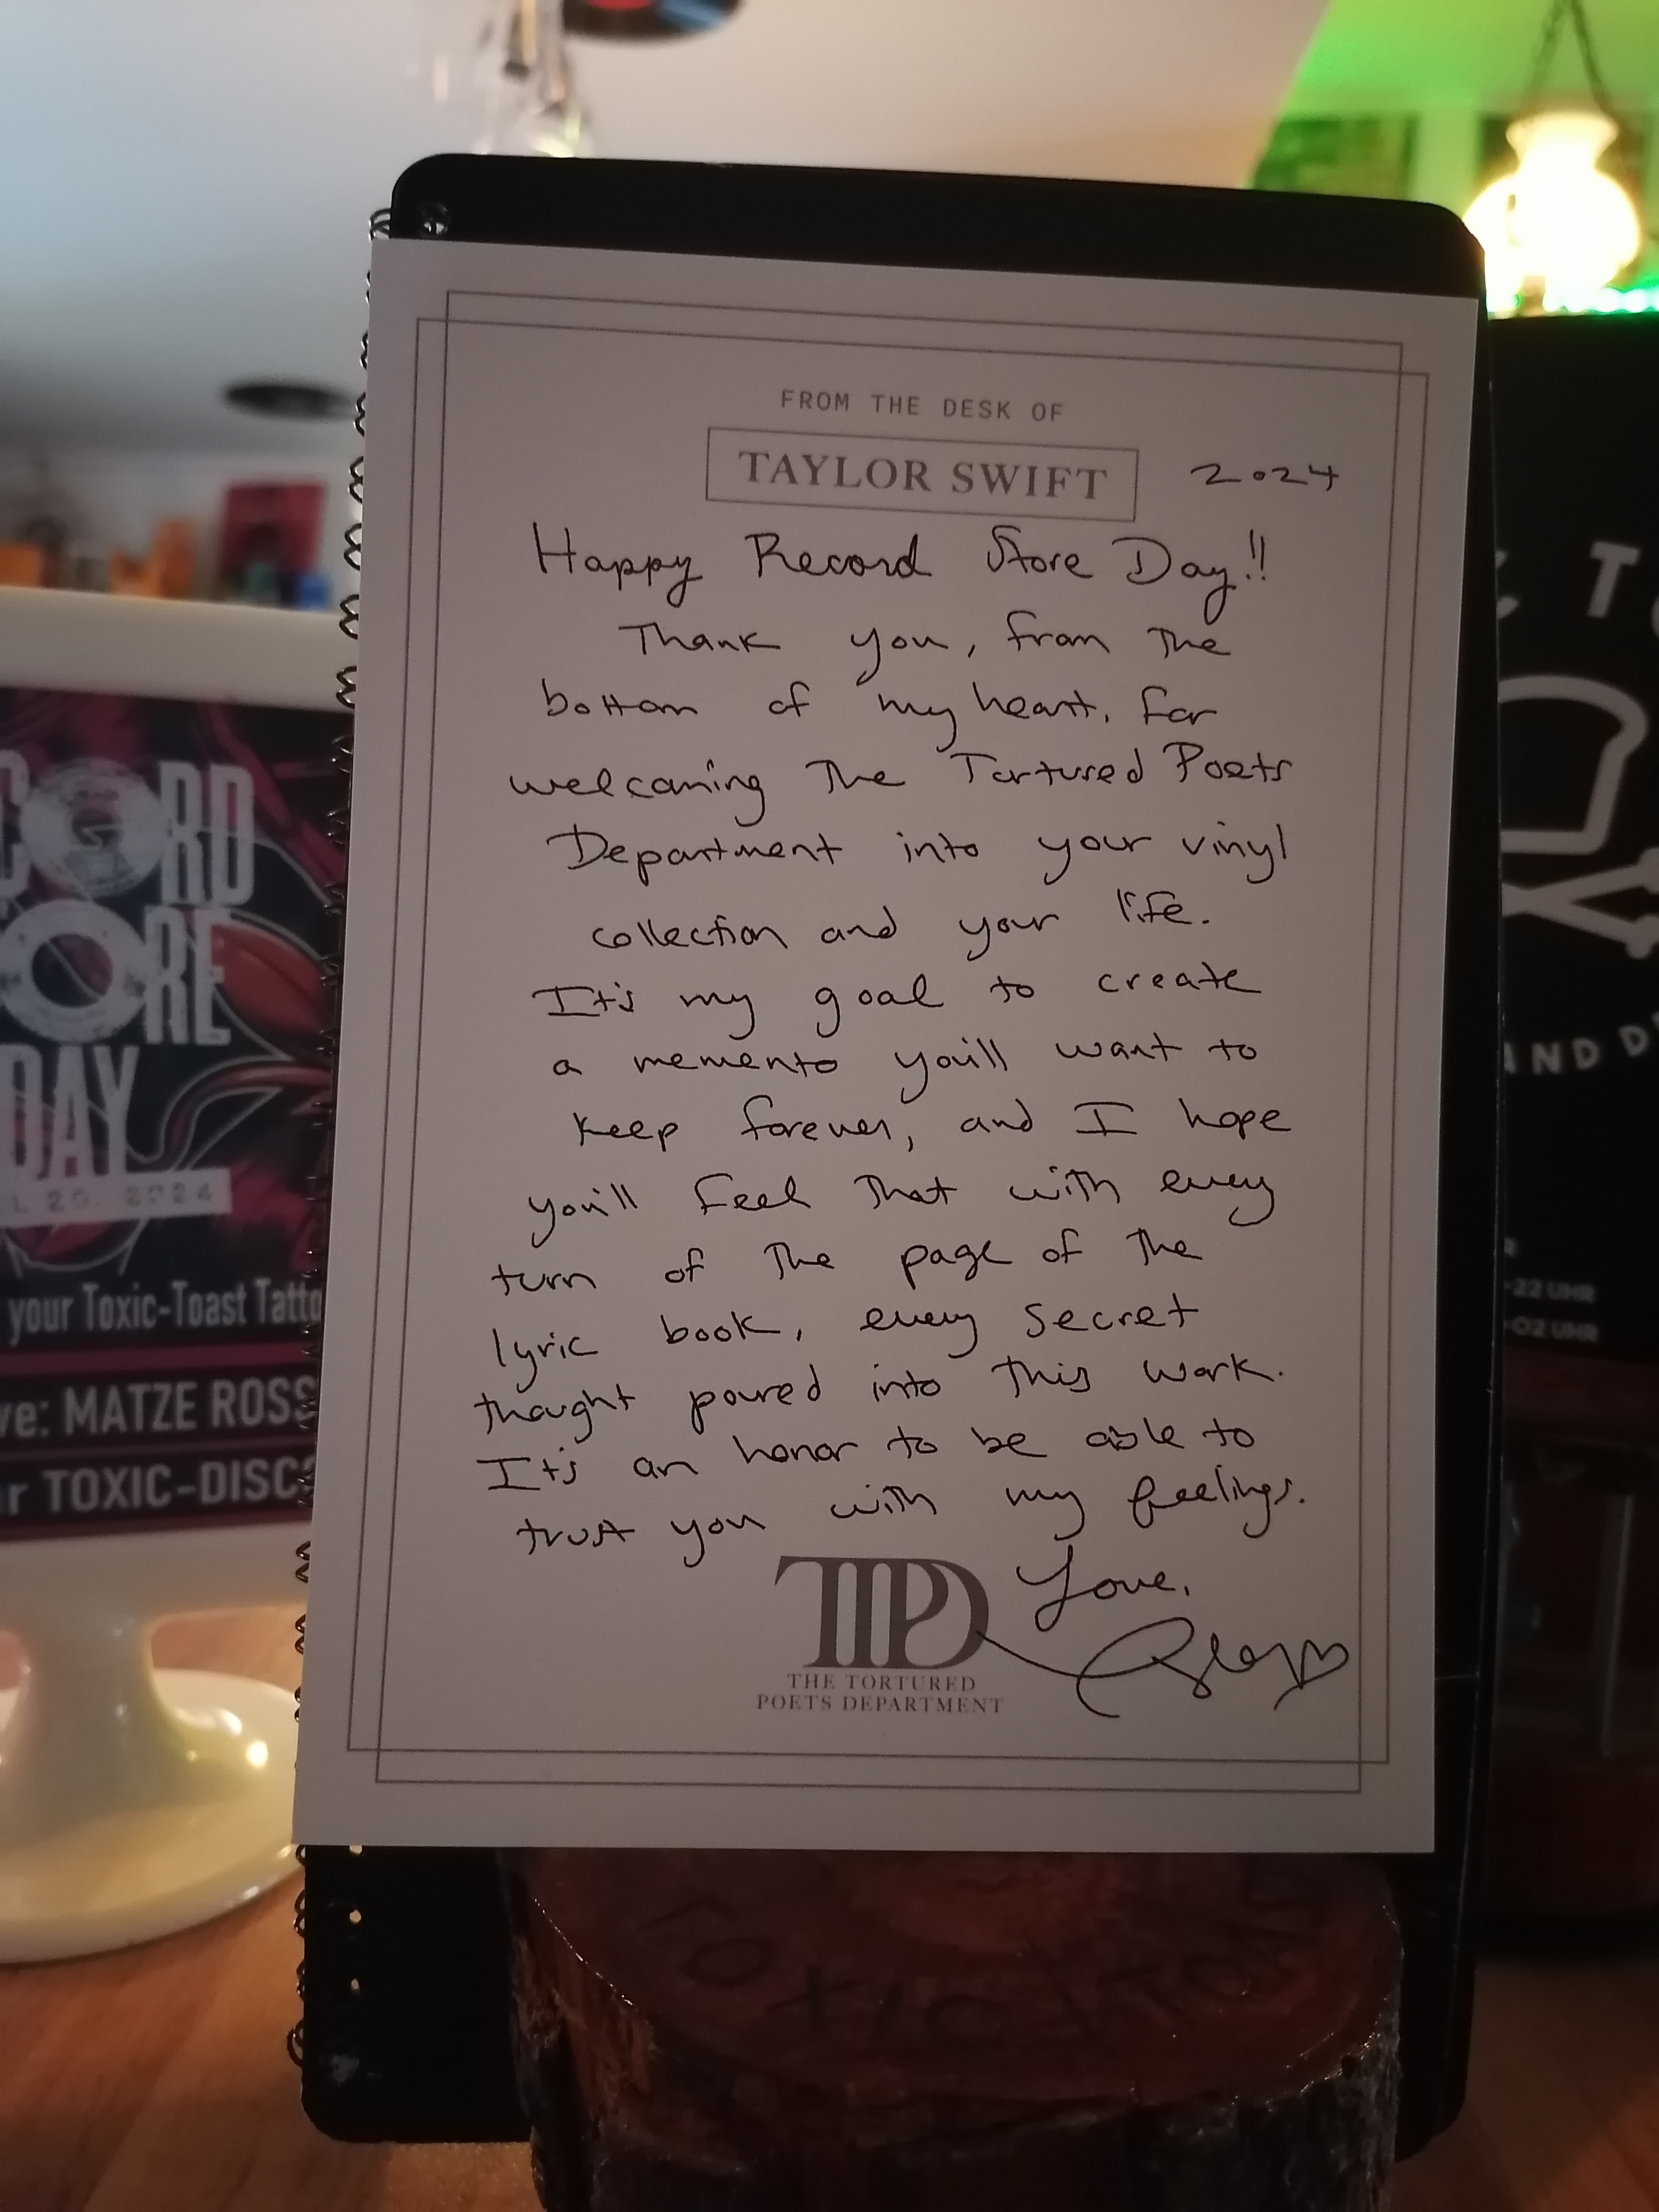 FROM THE DESK OF
TAYLOR SWIFT
2024
Happy Record Store Day!!
Thank you, from the
bottom of my heart, for
welcoming The Tortured Poets
Department into your vinyl
collection and your life.
It's my goal to create
a memento you'll want to
keep forever, and I hope
you'll feel that with every
turn of the page of the
lyric book, every secret
thought poured into this work.
It's an honor to be able to
trust you with my feelings.
Love,
TTPD
THE TORTURED
POETS DEPARTMENT
CORD
ORE
DAY
L 20. 2024
your Toxic-Toast Tatto
ve: MATZE ROSS
r TOXIC-DISC
T
AND D
-22 UHR
-02 UHR
TOXIC TOAS